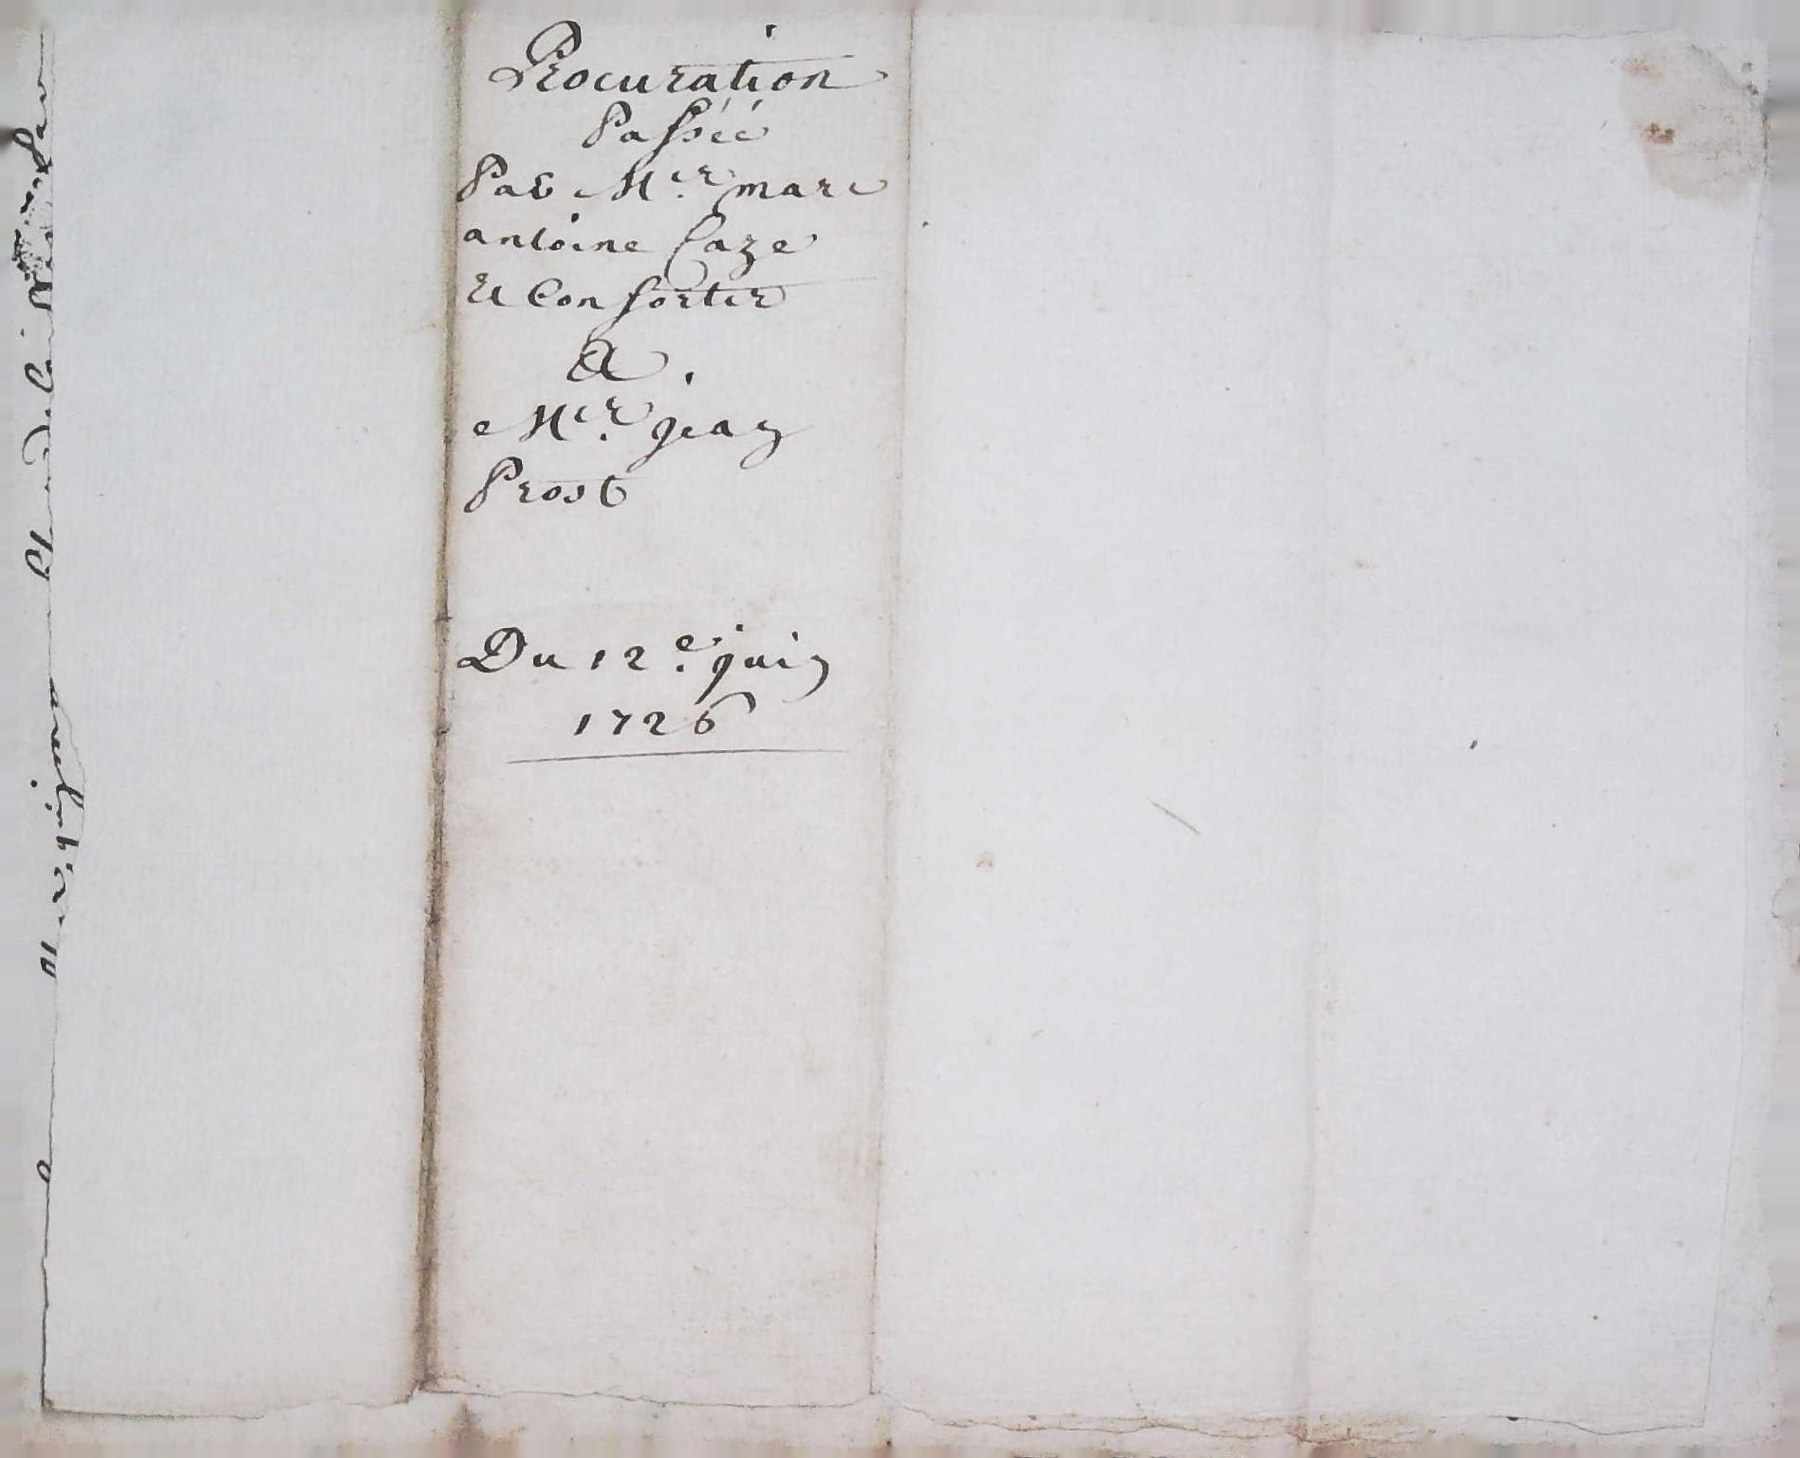 Procuration
Passéé
Par Mer. marc
antoine Caze
Et Consortz
A
Mer. jean
Prost
Du 12e. juin
1726